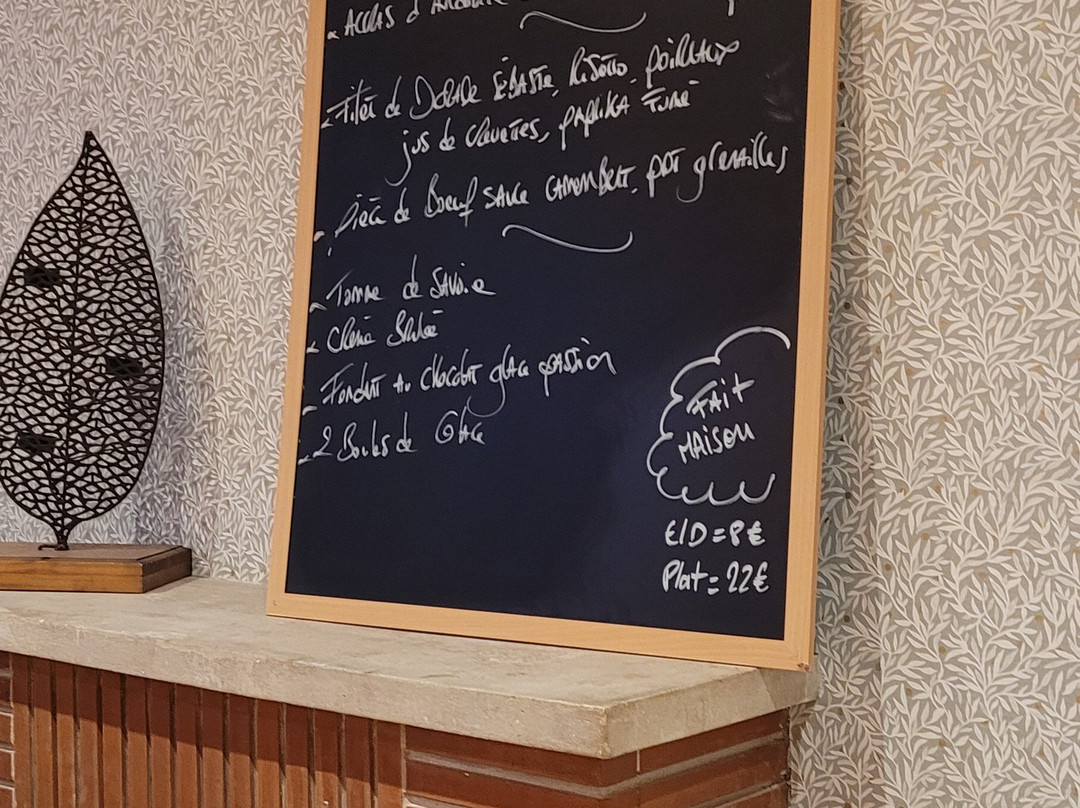 - Accras d'
- Filet de Dorade SÉBASTE, Risotto, poireaux
jus de crevettes, PAPRIKA Fumé
- Pièce de Boeuf SAUCE CAMEMBERT, PDT grenailles
- Tomme de SAVOie
- Crème Brulée
- Fondant Au chocolat glace passion
- 2 Boules de Glace
FAIT
MAISON
E/D = 8€
Plat = 22€